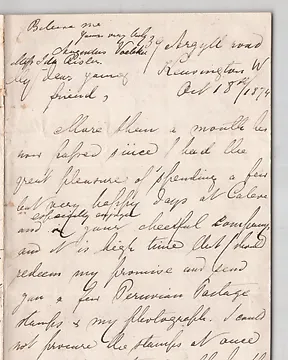 Believe me
Yours very truly
Augustus Voelcker
Miss Ida Risler.
39 Argyll road
Kensington W
Oct 18th/1874
My dear young
friend,
More than a month has
now passed since I had the
great pleasure of spending a few
but very happy days at Calève
especially enjoyed
and your cheerful company,
and it is high time that I should
redeem my promise and send
you a few Peruvian Postage
stamps & my photograph. I could
not procure the stamps at once